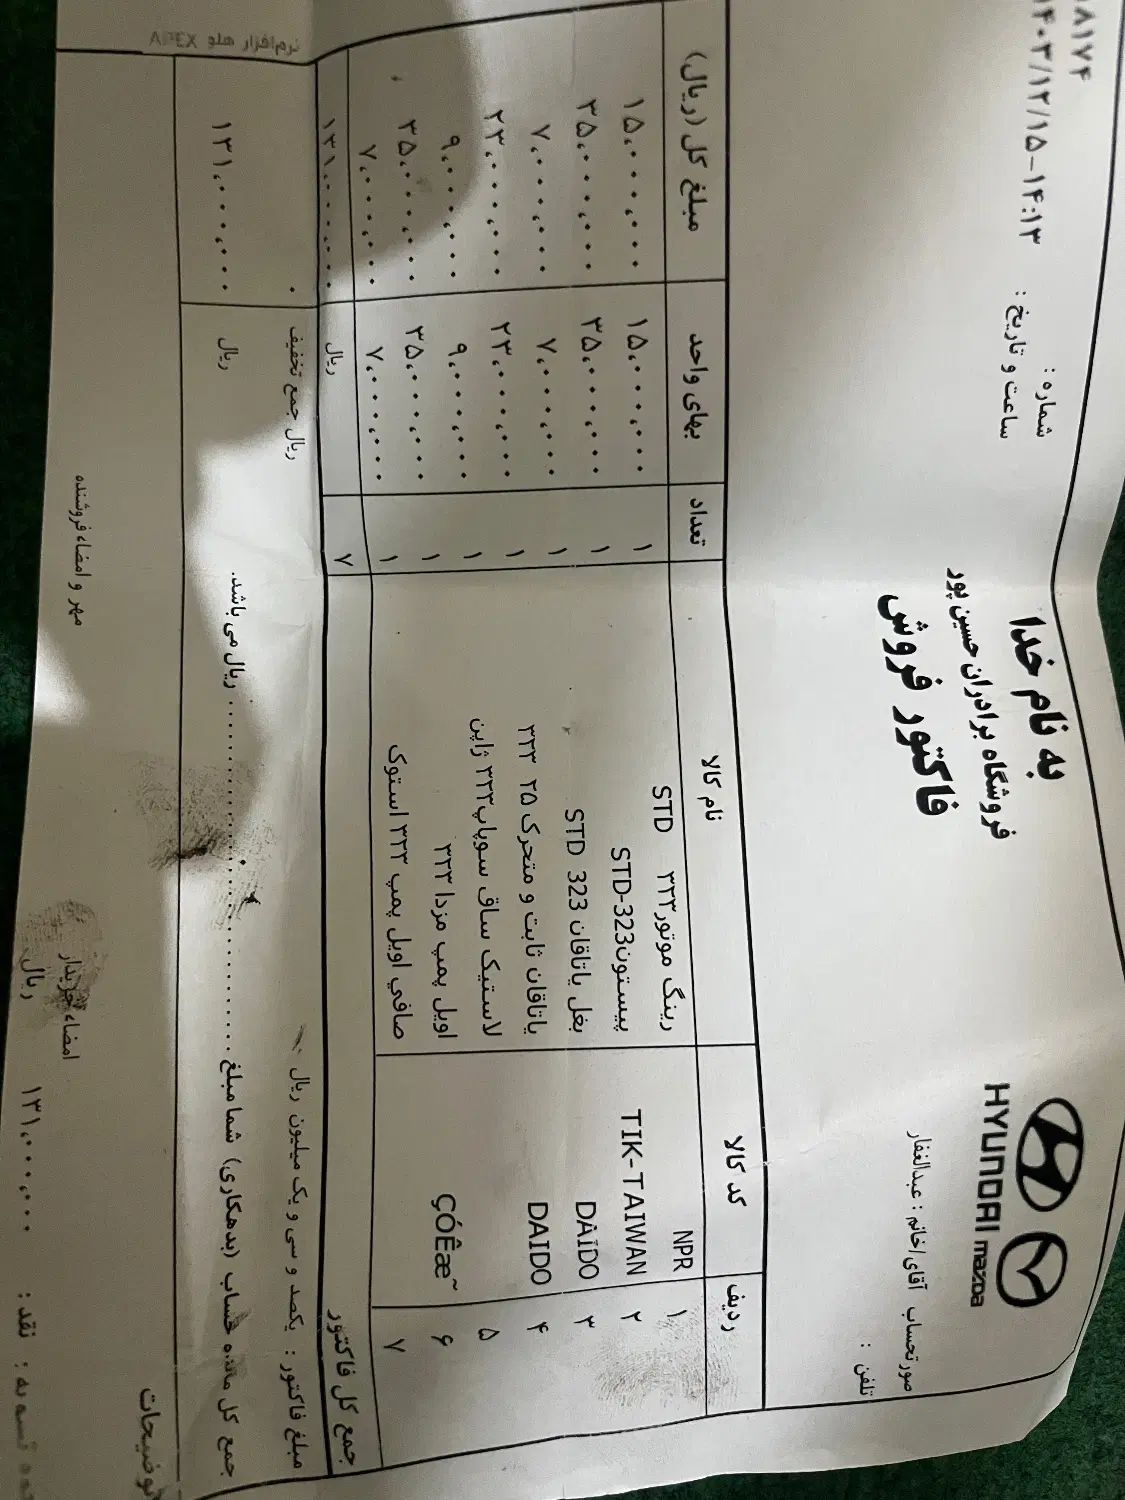 به نام خدا
فروشگاه برادران حسین پور
فاکتور فروش
HYUNDAI mazda
شماره : ۸۱۷۴
ساعت و تاریخ : ۱۴۰۳/۱۲/۱۵-۱۴:۱۳
صورتحساب آقای/خانم : عبدالغفار
تلفن :
ردیف کد کالا نام کالا تعداد بهای واحد مبلغ کل (ریال)
۱ NPR رینگ موتور۳۲۳ STD ۱ ۱۵,۰۰۰,۰۰۰ ۱۵,۰۰۰,۰۰۰
۲ TIK-TAIWAN پیستون323-STD ۱ ۳۵,۰۰۰,۰۰۰ ۳۵,۰۰۰,۰۰۰
۳ DAIDO بغل یاتاقان 323 STD ۱ ۷,۰۰۰,۰۰۰ ۷,۰۰۰,۰۰۰
۴ DAIDO یاتاقان ثابت و متحرک ۲۵ ۳۲۳ ۱ ۲۳,۰۰۰,۰۰۰ ۲۳,۰۰۰,۰۰۰
۵ لاستیک ساق سوپاپ۳۲۳ ژاپن ۱ ۹,۰۰۰,۰۰۰ ۹,۰۰۰,۰۰۰
۶ ÇÓÊæ˜ اویل پمپ مزدا ۳۲۳ ۱ ۳۵,۰۰۰,۰۰۰ ۳۵,۰۰۰,۰۰۰
۷ صافي اویل پمپ ۳۲۳ استوک ۱ ۷,۰۰۰,۰۰۰ ۷,۰۰۰,۰۰۰
جمع کل فاکتور ۷ ریال ۱۳۱,۰۰۰,۰۰۰
مبلغ فاکتور : یکصد و سی و یک میلیون ریال : ریال جمع تخفیف ۰
جمع کل مانده حساب (بدهکاری) شما مبلغ ........................ ریال می باشد. ریال ۱۳۱,۰۰۰,۰۰۰
توضیحات
نرم‌افزار هلو APEX
امضاء خریدار
مهر و امضاء فروشنده
نقد : ۱۳۱,۰۰۰,۰۰۰ ریال